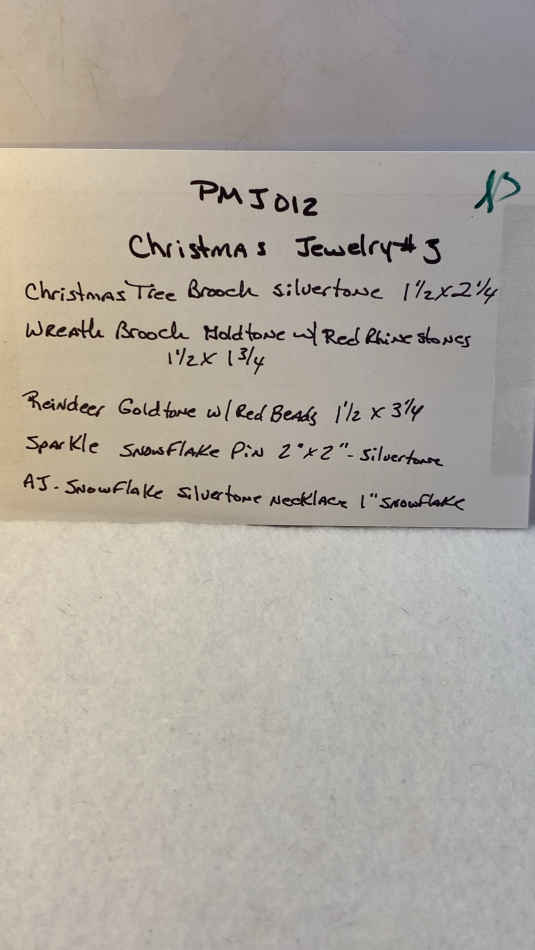 PMJ012
Christmas Jewelry #3
Christmas Tree Brooch Silvertone 1 1/2 X 2 1/4
Wreath Brooch Goldtone w/ Red Rhinestones
1 1/2 X 1 3/4
Reindeer Goldtone w/ Red Beads 1 1/2 X 3 1/4
Sparkle Snowflake Pin 2" X 2" - Silvertone
AJ - Snowflake Silvertone Necklace 1" Snowflake